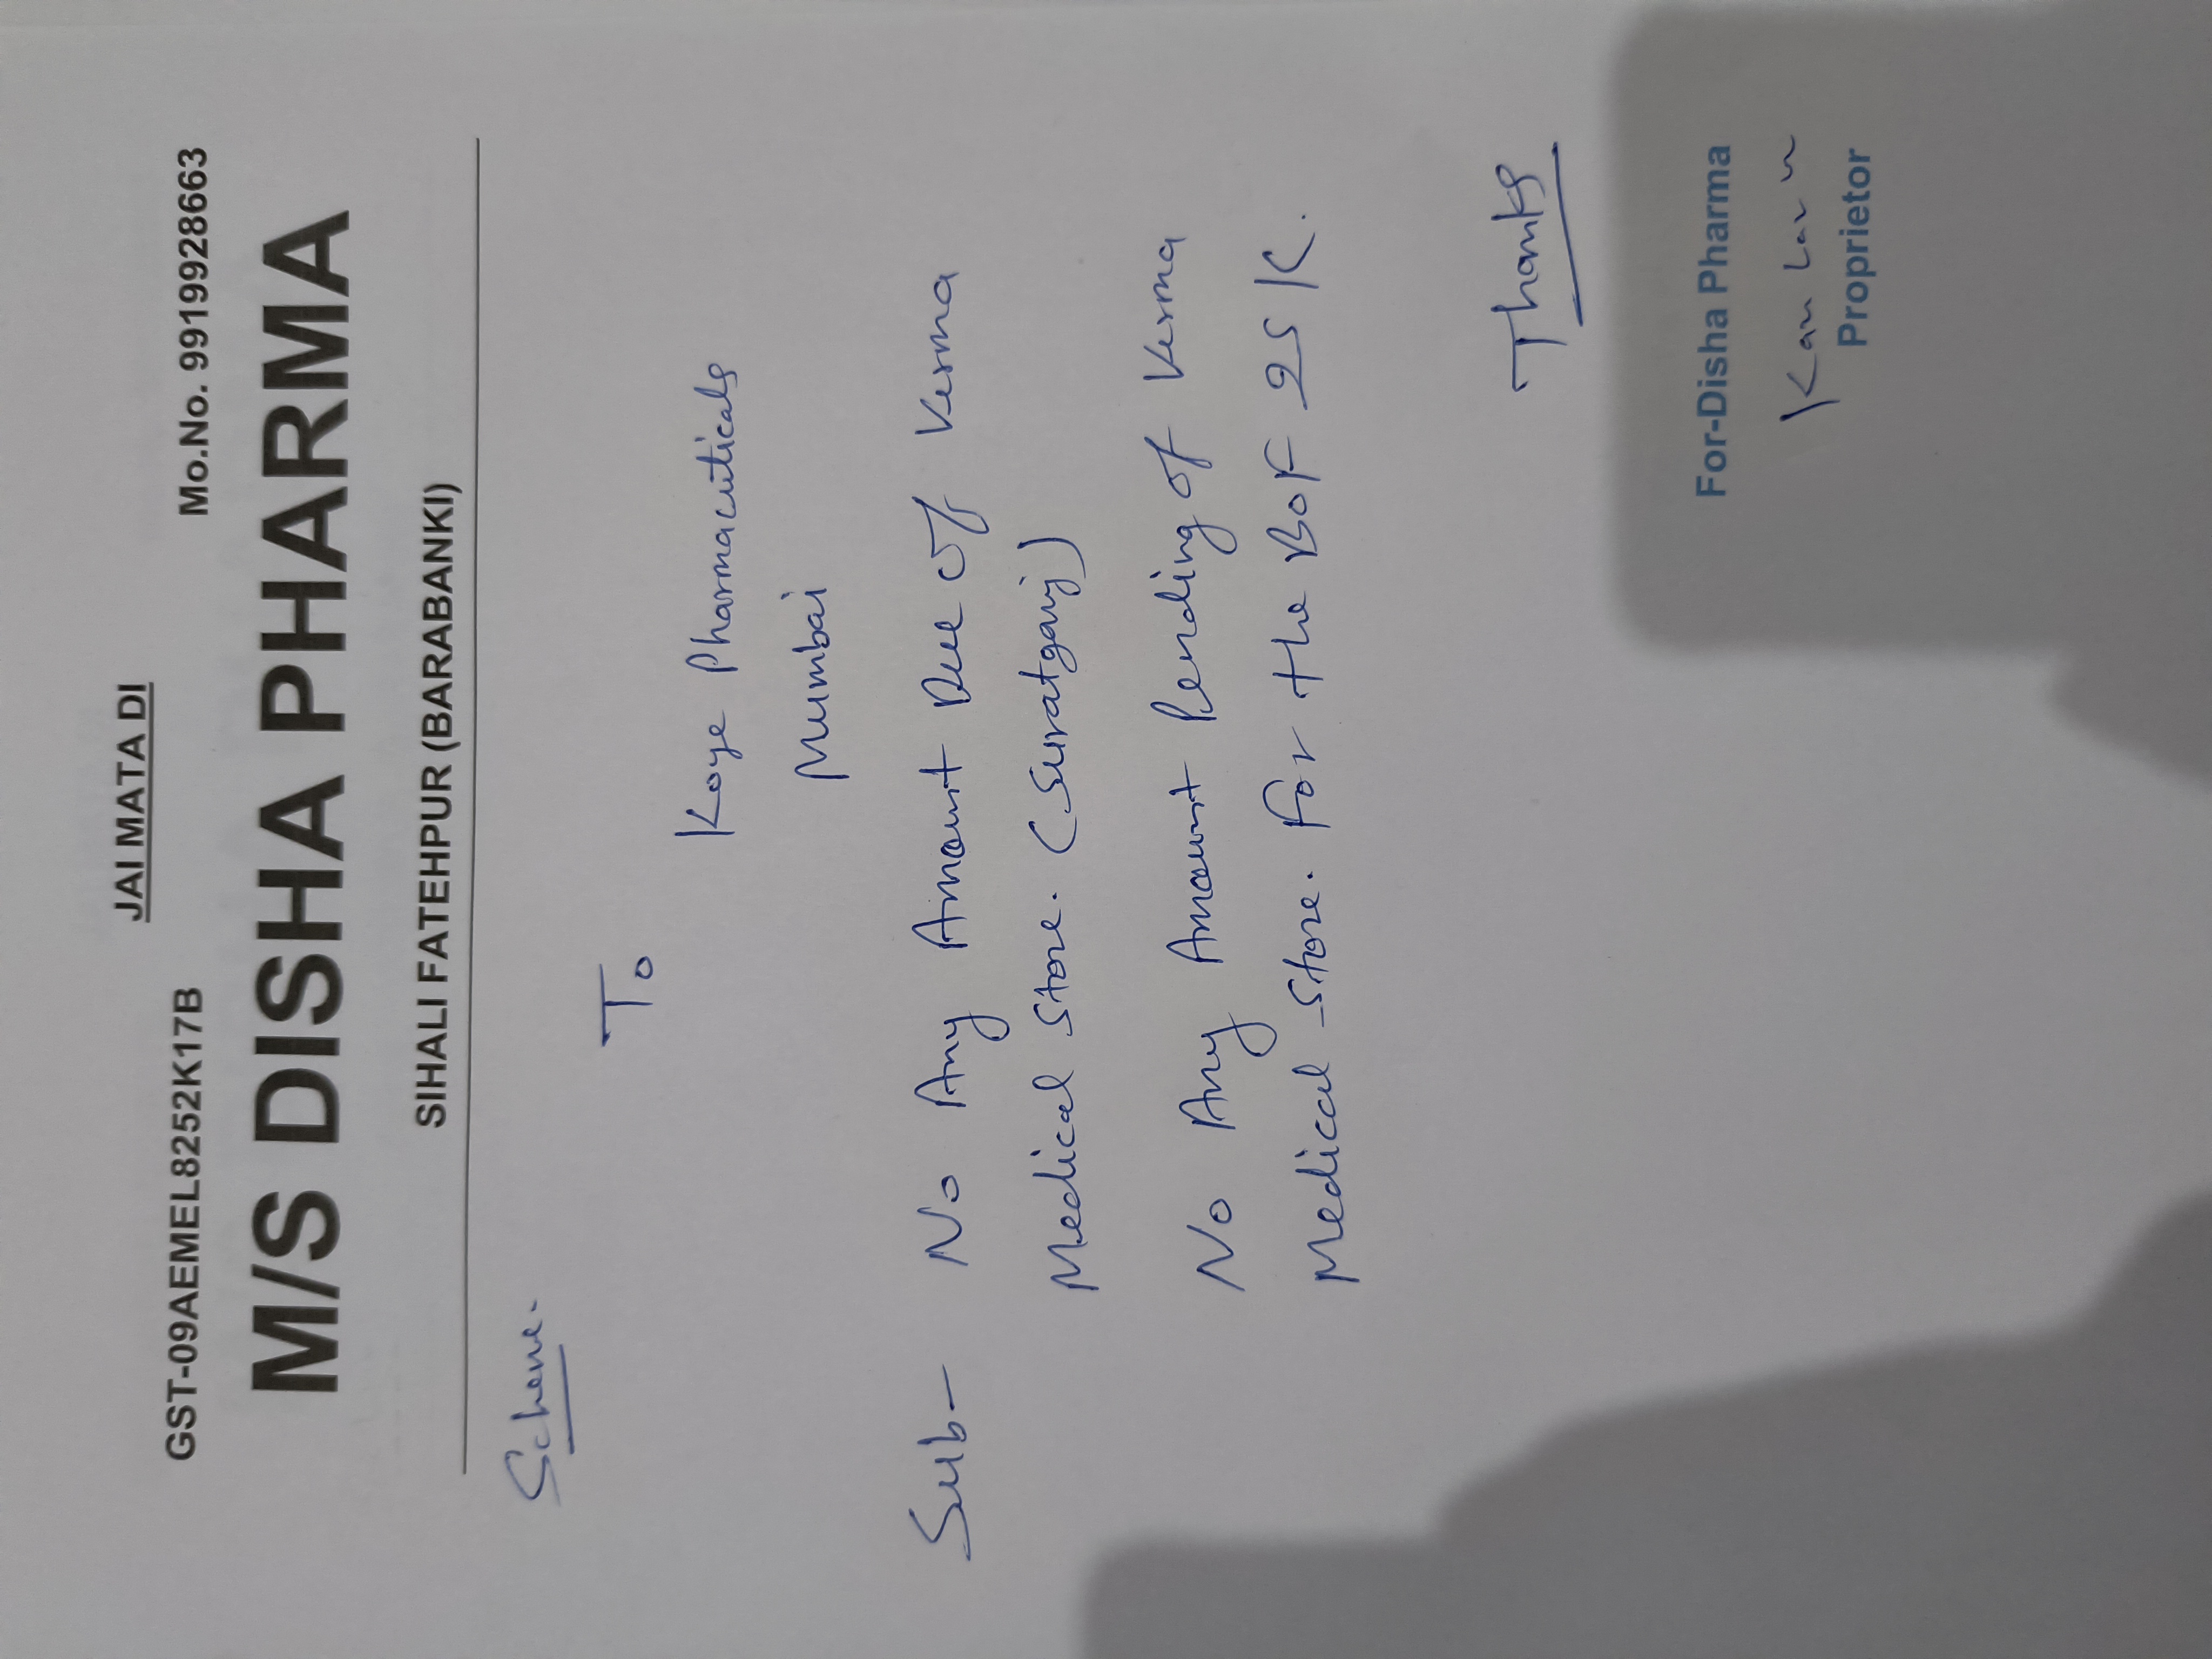 JAI MATA DI
GST-09AEMEL8252K17B Mo.No. 9919928663
M/S DISHA PHARMA
SIHALI FATEHPUR (BARABANKI)
Scheme.
To
Koye Pharmaceuticals
Mumbai
Sub- No Any Amount Due of Verma
Medical Store. (Suratganj)
No Any Amount Pending of Verma
Medical Store. For the BOF 25K.
Thanks
For-Disha Pharma
Proprietor